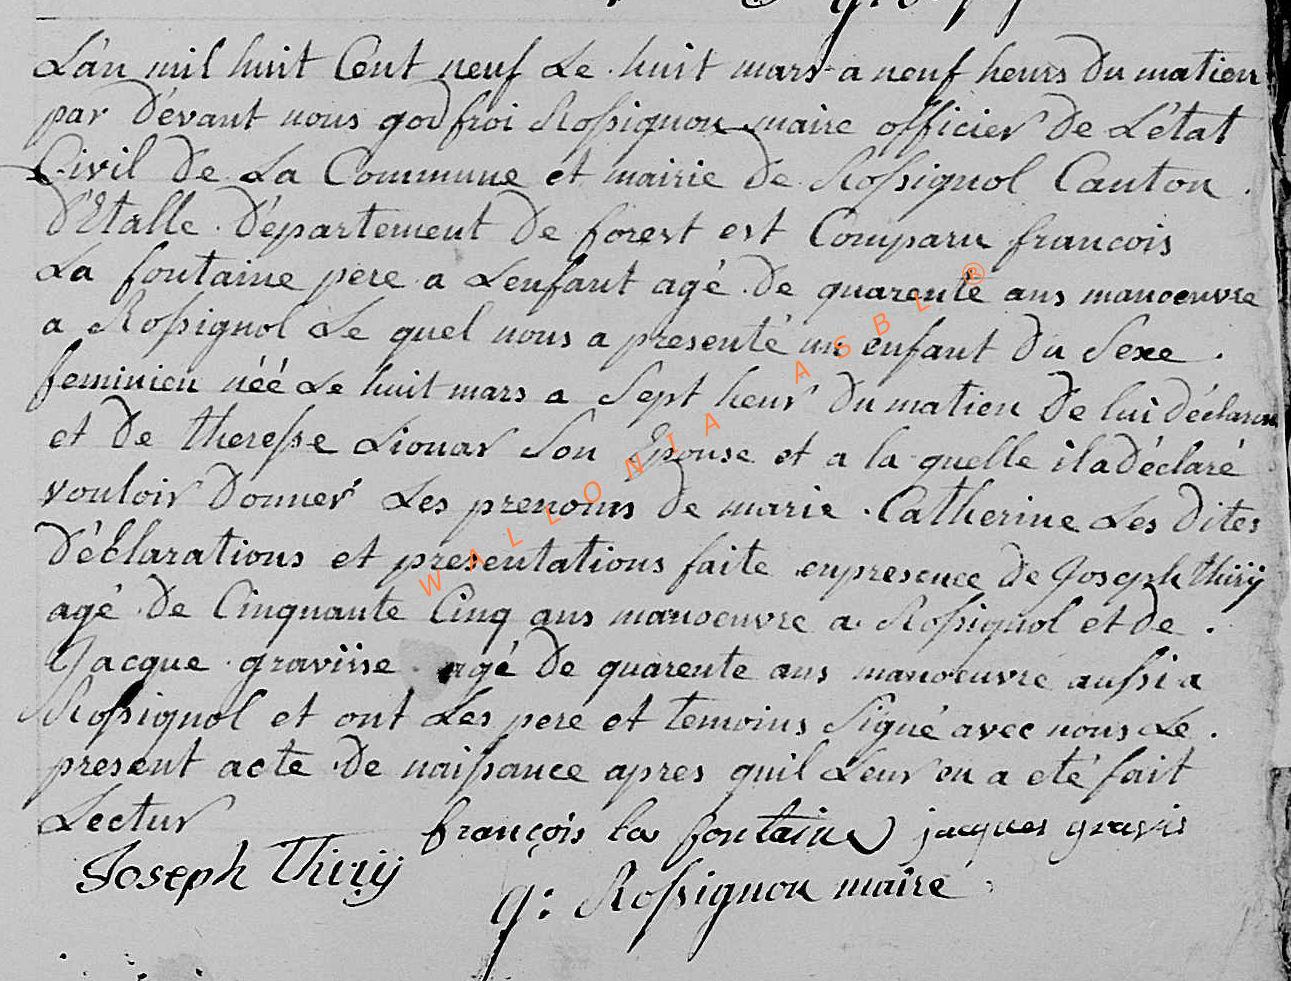 L'an mil huit Cent neuf Le huit mars a neuf heurs du matien
par dévant nous godfroi Rossignon maire officier de L'état
Civil de La Commune et mairie de Rossignol Canton
d'Etalle département de forest est Comparu francois
La fontaine pere a Lenfant agé de quarente ans manoeuvre
a Rossignol Le quel nous a presenté un enfant du Sexe
feminien néé Le huit mars a Sept heur du matien de lui déclarant
et de theresse Liouar Son Epouse et a la quelle il a déclaré
vouloir donner Les prenoms de marie Catherine Les dites
déclarations et presentations faite enpresence de Joseph thirÿ
agé de Cinquante Cinq ans manoeuvre a Rossignol et de
Jacque gravisse agé de quarente ans manoeuvre aussi a
Rossignol et ont Les pere et temoins Signé avec nous Le
present acte de naissance apres quil Leur en a eté fait
Lectur
françois la fontaine jacques gravis
Joseph Thirÿ
g: Rossignon maire
WALLONIA ASBL ®